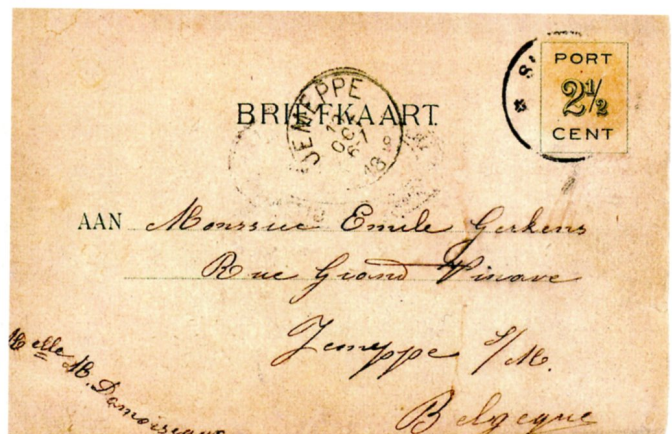 PORT
2½
CENT
BRIEFKAART
JEMEPPE
OCT
18
AAN Monssieur Emile Gerkens
Rue Grand Vinave
Jemeppe s/M.
Belgique
Melle M. Damoiseaux